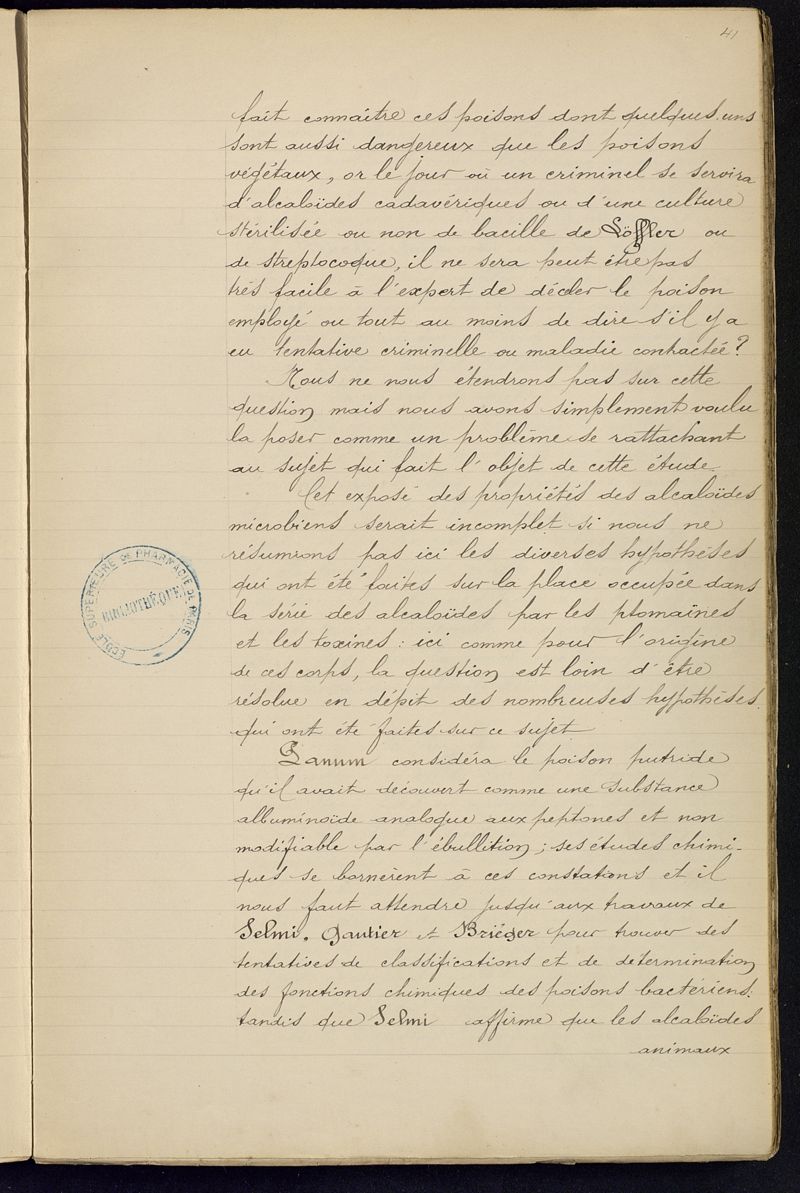 41
fait connaitre ces poisons dont quelques uns
sont aussi dangereux que les poisons
végétaux, or le jour où un criminel se servira
d'alcaloïdes cadavériques ou d'une culture
stérilisée ou non de bacille de Löffler ou
de streptocoque, il ne sera peut être pas
très facile à l'expert de décéler le poison
employé ou tout au moins de dire s'il y a
eu tentative criminelle ou maladie contractée?
Nous ne nous étendrons pas sur cette
question mais nous avons simplement voulu
la poser comme un problème se rattachant
au sujet qui fait l'objet de cette étude.
Cet exposé des propriétés des alcaloïdes
microbiens serait incomplet si nous ne
résumions pas ici les diverses hypothèses
qui ont été faites sur la place occupée dans
la série des alcaloïdes par les ptomaïnes
et les toxines: ici comme pour l'origine
de ces corps, la question est loin d'être
résolue en dépit des nombreuses hypothèses
qui ont été faites sur ce sujet
Panum considéra le poison putride
qu'il avait découvert comme une substance
albuminoïde analogue aux peptones et non
modifiable par l'ébullition; ses études chimi-
ques se bornèrent à ces constations et il
nous faut attendre jusqu'aux travaux de
Selmi, Gautier et Briéger pour trouver des
tentatives de classifications et de determination
des fonctions chimiques des poisons bactériens:
tandis que Selmi affirme que les alcaloïdes
animaux
ÉCOLE SUPÉRIEURE DE PHARMACIE DE PARIS
BIBLIOTHÈQUE